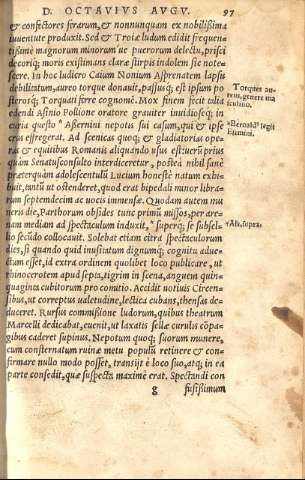 D. OCTAVIVS AVGV. 97
& confectores ferarum, & nonnunquam ex nobilißima
iuuentute produxit. Sed & Troiæ ludum edidit frequen-
tißimè maiorum minorum´ue puerorum delectu, prisci
decoriq; moris existimans claræ stirpis indolem sic note-
scere. In hoc ludicro Caium Nonium Asprenatem lapsu
debilitatum, aureo torque donauit, passusq; est ipsum po
sterosq; Torquati ferre cognomē. Mox finem fecit talia
edendi Asinio Pollione oratore grauiter inuidioseq; in
curia questo Asernini nepotis sui casum, qui & ipse
crus efregerat. Ad scenicas quoq; & gladiatorias ope-
ras & equitibus Romanis aliquando usus est: uerū prius
quàm Senatusconsulto interdiceretur, postea nihil sanè
præterquàm adolescentulū Lucium honestè natum exhi-
buit, tantū ut ostenderet, quod erat bipedali minor libra-
rum septemdecim ac uocis immensæ. Quodam autem mu
neris die, Parthorum obsides tunc primū missos, per are-
nam mediam ad spectaculum induxit, superq; se subsel-
lio secūdo collocauit. Solebat etiam citra spectaculorum
dies, si quando quid inuisitatum dignumq; cognitu aduec-
tam esset, id extra ordinem quolibet loco publicare, ut
rhinocerotem apud septa, tigrim in scena, anguem quin-
quaginta cubitorum pro comitio. Accidit uotiuis Circen-
sibus, ut correptus ualetudine, lectica cubans, thensas de-
duceret. Rursus commissione ludorum, quibus theatrum
Marcelli dedicabat, euenit, ut laxatis sellæ curulis cōpa-
gibus caderet supinus. Nepotum quoq; suorum munere,
cum consternatum ruinæ metu populū retinere & con-
firmare nullo modo posset, transijt è loco suo, atq; in ea
parte consedit, quæ suspecta maximè erat. Spectandi con
g fusißimum
Torques au-
reus, genere ma
sculino.
Beroald⁹ legit
Eternini.
Als, supra.